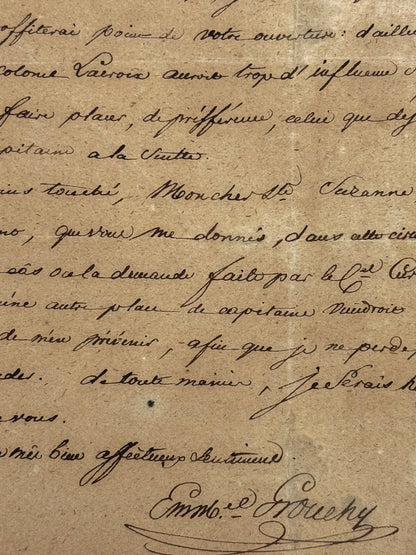 offiterai point de votre ouverture: d'ailleu
colonel Lacroix auroit trop d'influence
faire placer, de préfférence, celui que des
pitaine à la Suite.
touché, Mon cher Ste Suzanne
que vous me donnés, dans cette circ
cas où la demande faite par le Cel
autre place de capitaine viendroit
de m'en prévenir, afin que je ne perde
des. de toute manière, je serais h
vous.
mes bien affectueux Sentimens.
Emm.el Grouchy